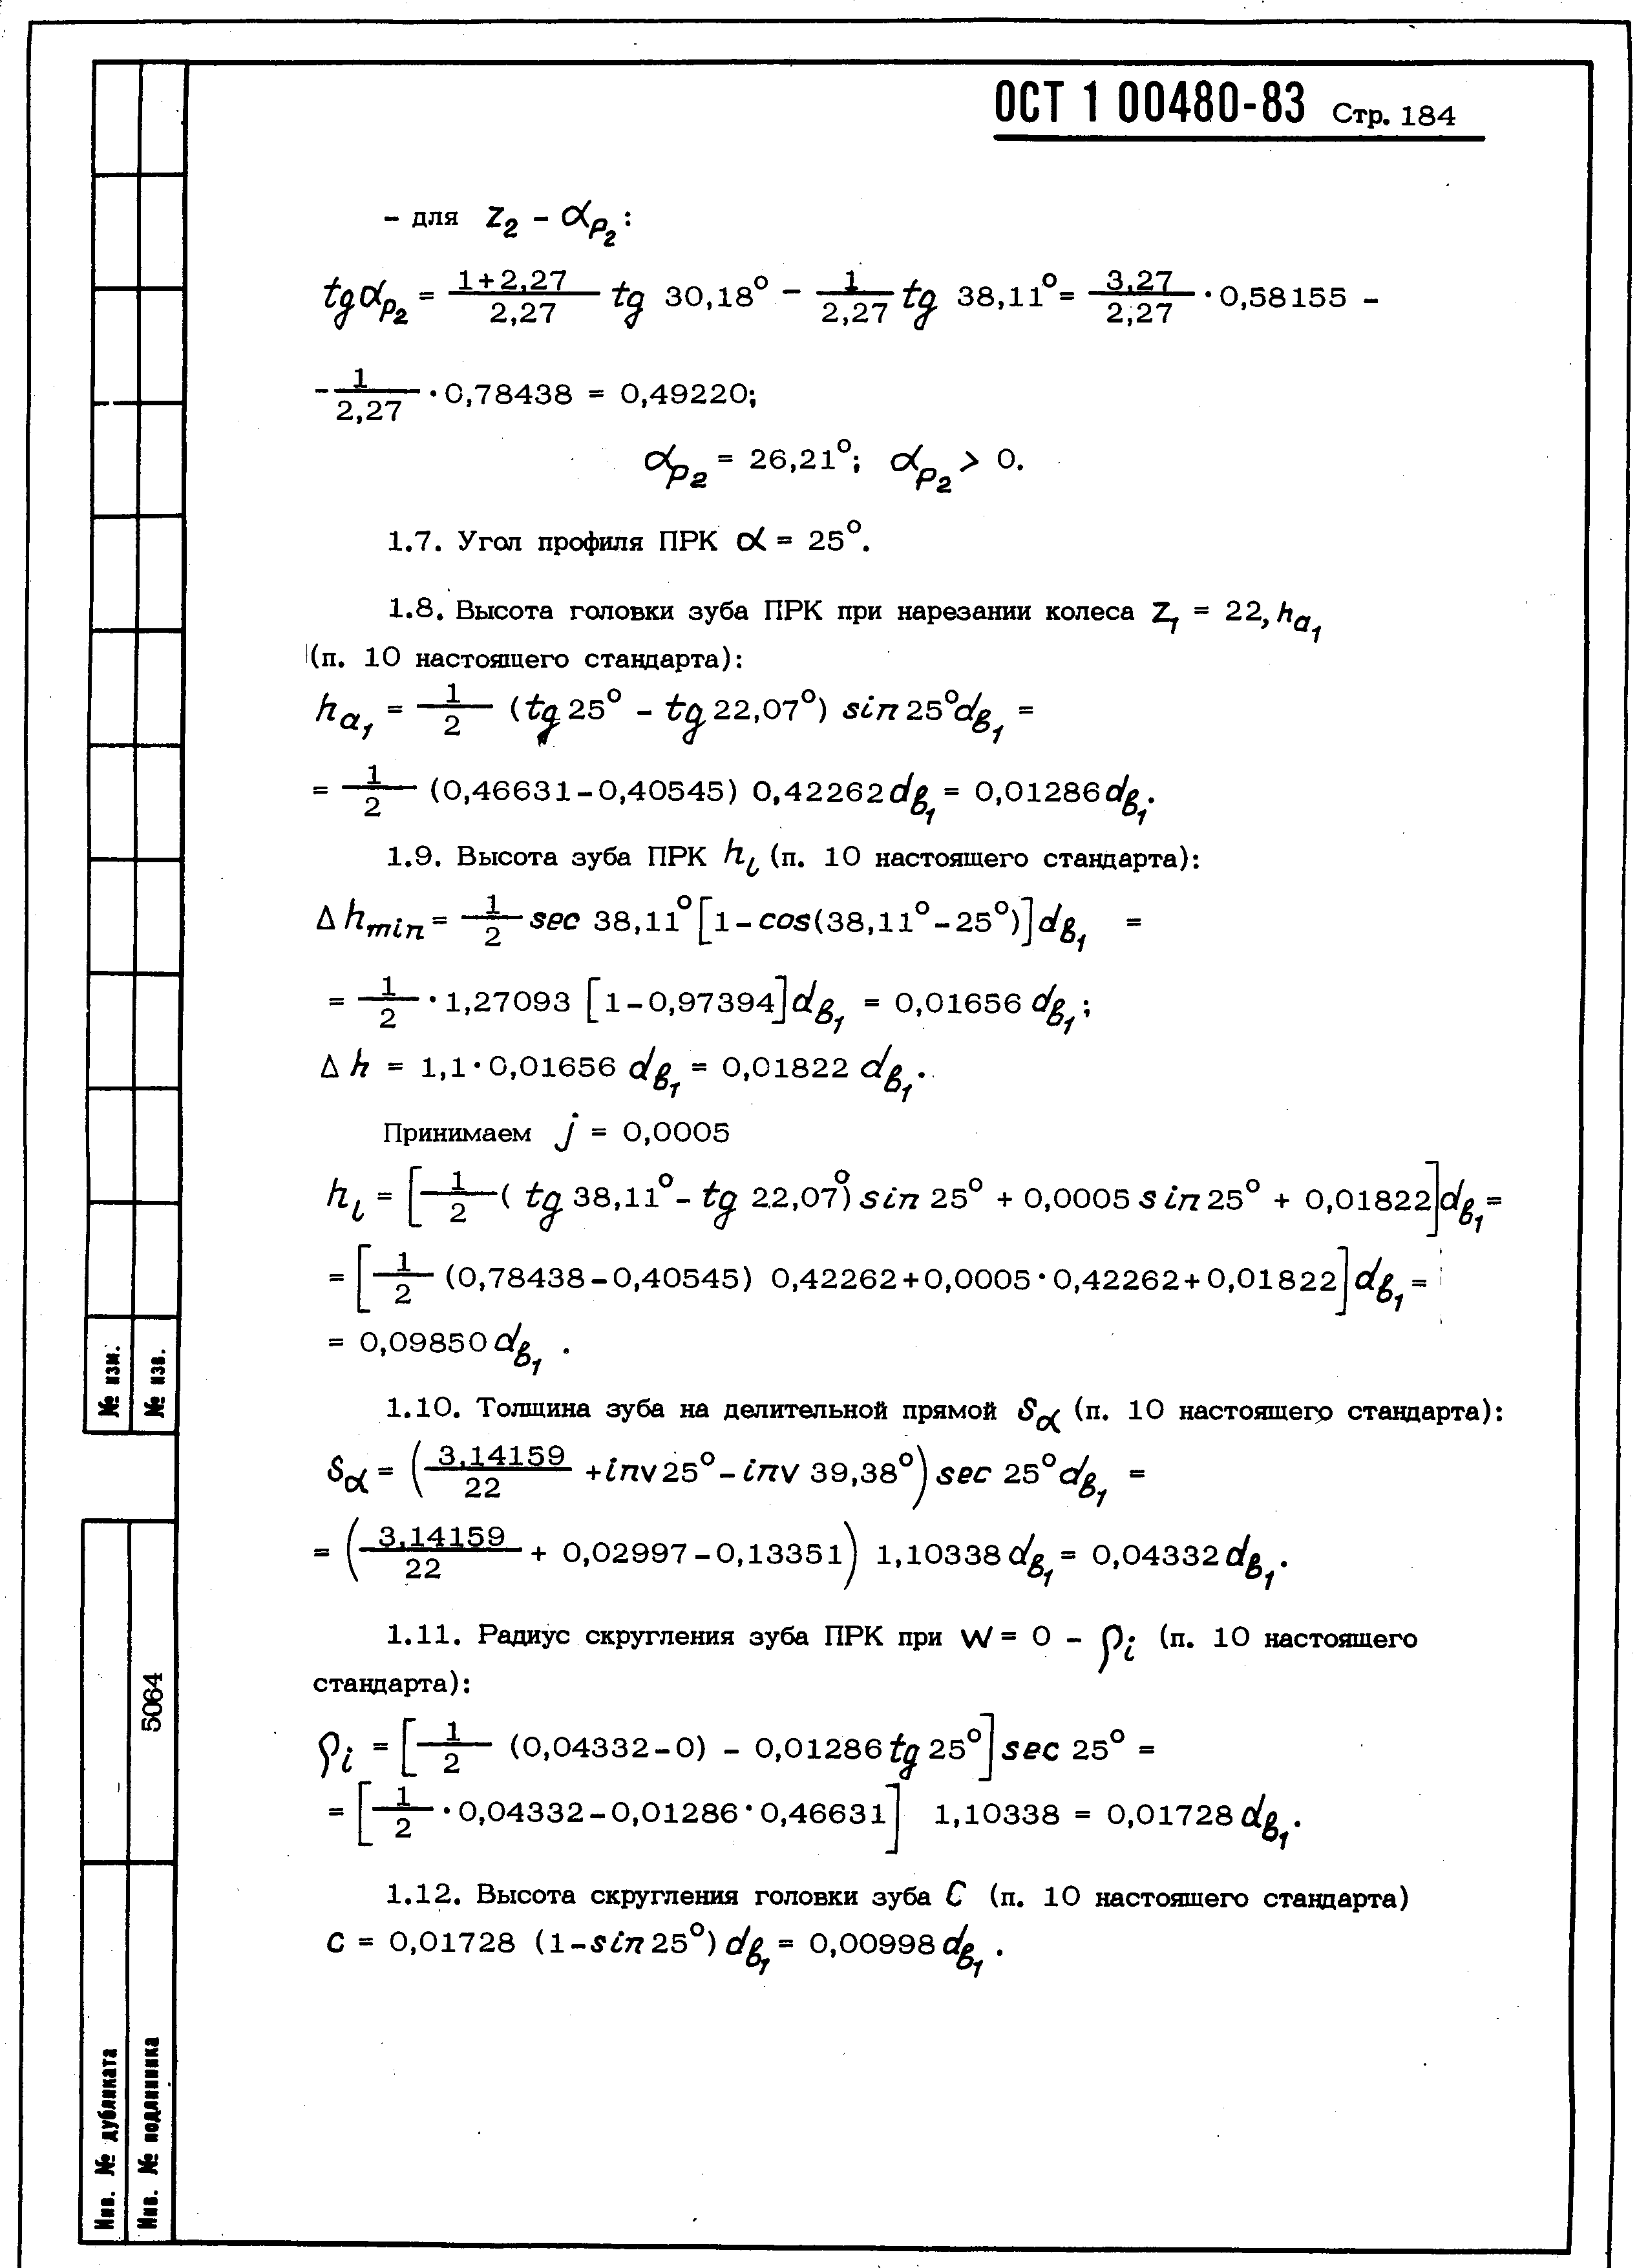 ОСТ 1 00480-83 Стр. 184
- для z₂ - α_p₂:
tgα_p₂ = (1+2,27)/2,27 tg 30,18° - 1/2,27 tg 38,11° = 3,27/2,27 · 0,58155 -
- 1/2,27 · 0,78438 = 0,49220;
α_p₂ = 26,21°; α_p₂ > 0.
1.7. Угол профиля ПРК α = 25°.
1.8. Высота головки зуба ПРК при нарезании колеса z₁ = 22, h_a₁
(п. 10 настоящего стандарта):
h_a₁ = 1/2 (tg 25° - tg 22,07°) sin 25° d_в₁ =
= 1/2 (0,46631-0,40545) 0,42262 d_в₁ = 0,01286 d_в₁.
1.9. Высота зуба ПРК h_i (п. 10 настоящего стандарта):
Δ h_min = 1/2 sec 38,11° [1-cos(38,11°-25°)] d_в₁ =
= 1/2 · 1,27093 [1-0,97394] d_в₁ = 0,01656 d_в₁;
Δ h = 1,1·0,01656 d_в₁ = 0,01822 d_в₁.
Принимаем j = 0,0005
h_i = [1/2 (tg 38,11° - tg 22,07°) sin 25° + 0,0005 sin 25° + 0,01822] d_в₁ =
= [1/2 (0,78438-0,40545) 0,42262+0,0005·0,42262+0,01822] d_в₁ =
= 0,09850 d_в₁ .
1.10. Толщина зуба на делительной прямой s_α (п. 10 настоящего стандарта):
s_α = (3,14159/22 + inv 25° - inv 39,38°) sec 25° d_в₁ =
= (3,14159/22 + 0,02997-0,13351) 1,10338 d_в₁ = 0,04332 d_в₁.
1.11. Радиус скругления зуба ПРК при w = 0 - ρ_i (п. 10 настоящего
стандарта):
ρ_i = [1/2 (0,04332-0) - 0,01286 tg 25°] sec 25° =
= [1/2 · 0,04332-0,01286·0,46631] 1,10338 = 0,01728 d_в₁.
1.12. Высота скругления головки зуба C (п. 10 настоящего стандарта)
C = 0,01728 (1-sin 25°) d_в₁ = 0,00998 d_в₁ .
№ изм.
№ изв.
5064
Инв. № дубликата
Инв. № подлинника